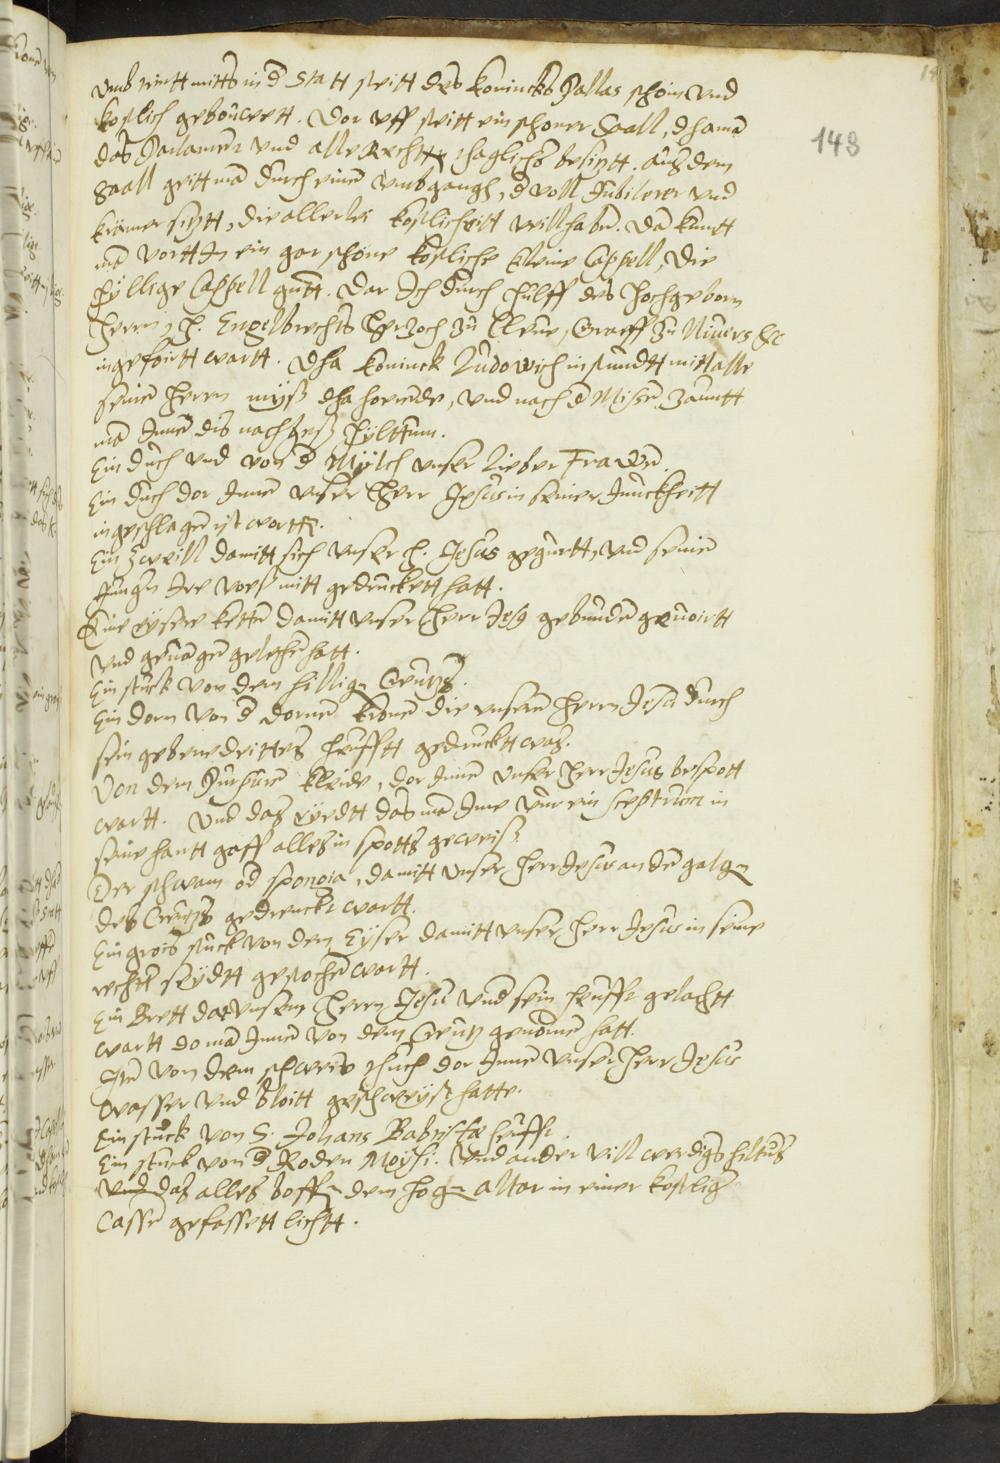 148
vmb trintt mitts in d Statt steitt des Konincks Pallas schoin vnd
kostlich gebouwett. Dor vff steitt ein schoner Saall, d hama
das Parlament vnd alle Rechtt thaglichs besizt. Auß dem
Saall geitt ma durch einen vmbgangh, d voll Jubilerer vnd
kramer sizt, die allerlei kostlicheitt veill haben. Da kumtt
ma vortt In ein gar schone kostliche kleine Cappell, die
hyllige Cappell gnt. Dar Ich durch hulff des Hochgeborn
Herrn, H. Engelbrechts Hertzoch zu Cleue, Graeff zu Niuers &c
ingefoirtt wartt. Dha Koninck Ludowich in stundtt mitt alle
seinen Herrn myß dha horende, vnd nach d Missen zauntt
ma Innen dis nachgeß hylthum.
Ein duch vnd von d Mylch vnser lieber Frawen.
Ein duch dor Inne vnser Herr Jesus in seiner Junckheitt
ingeschlagen ist wortt.
Ein zweell damitt sich vnser H. Jesus gegurtt, vnd seinen
Jungen Ire voeß mitt gedruckett hatt.
Eine ysere ketten damitt vnser Herr Jesus gebunden geuoirtt
vnd geuangen gelegen hatt.
Ein stuck von dem hilligen Creutz.
Ein dorn von d dornen kronen die vnseren Herrn Jesu durch
sein gebenedeittes heufftt gedruckt was.
Von dem Purpuren kleide, dor Inne vnser Herr Jesus bespott
wartt. Vnd das rydtt das ma Ime vur ein sceptrum in
seine hantt gaff alles in spotts geweiß.
Der schwam od spongia, damitt vnser Herr Jesus an den galgen
des Creutz gedrenckt wartt.
Ein grois stuck von dem Eyser damitt vnser Herr Jesus in seine
rechte sydtt gestochen wartt.
Ein Brett dat vnsem Herrn Jesu vnd sein heufft gelachtt
wartt do ma Innen von dem Creutz genomen hatt.
Ite von dem schweis thuch dor Inne vnser Herr Jesus
wasser vnd bloitt geschweyst hatte.
Ein stuck von S. Johans Baptistæ heufft.
Ein stuck von d Roden Moysi. Vnd ander vill werdigs hiltums
Vnd das alles boffen dem hogen altar in einer kostliger
Cassen gefassett lichtt.